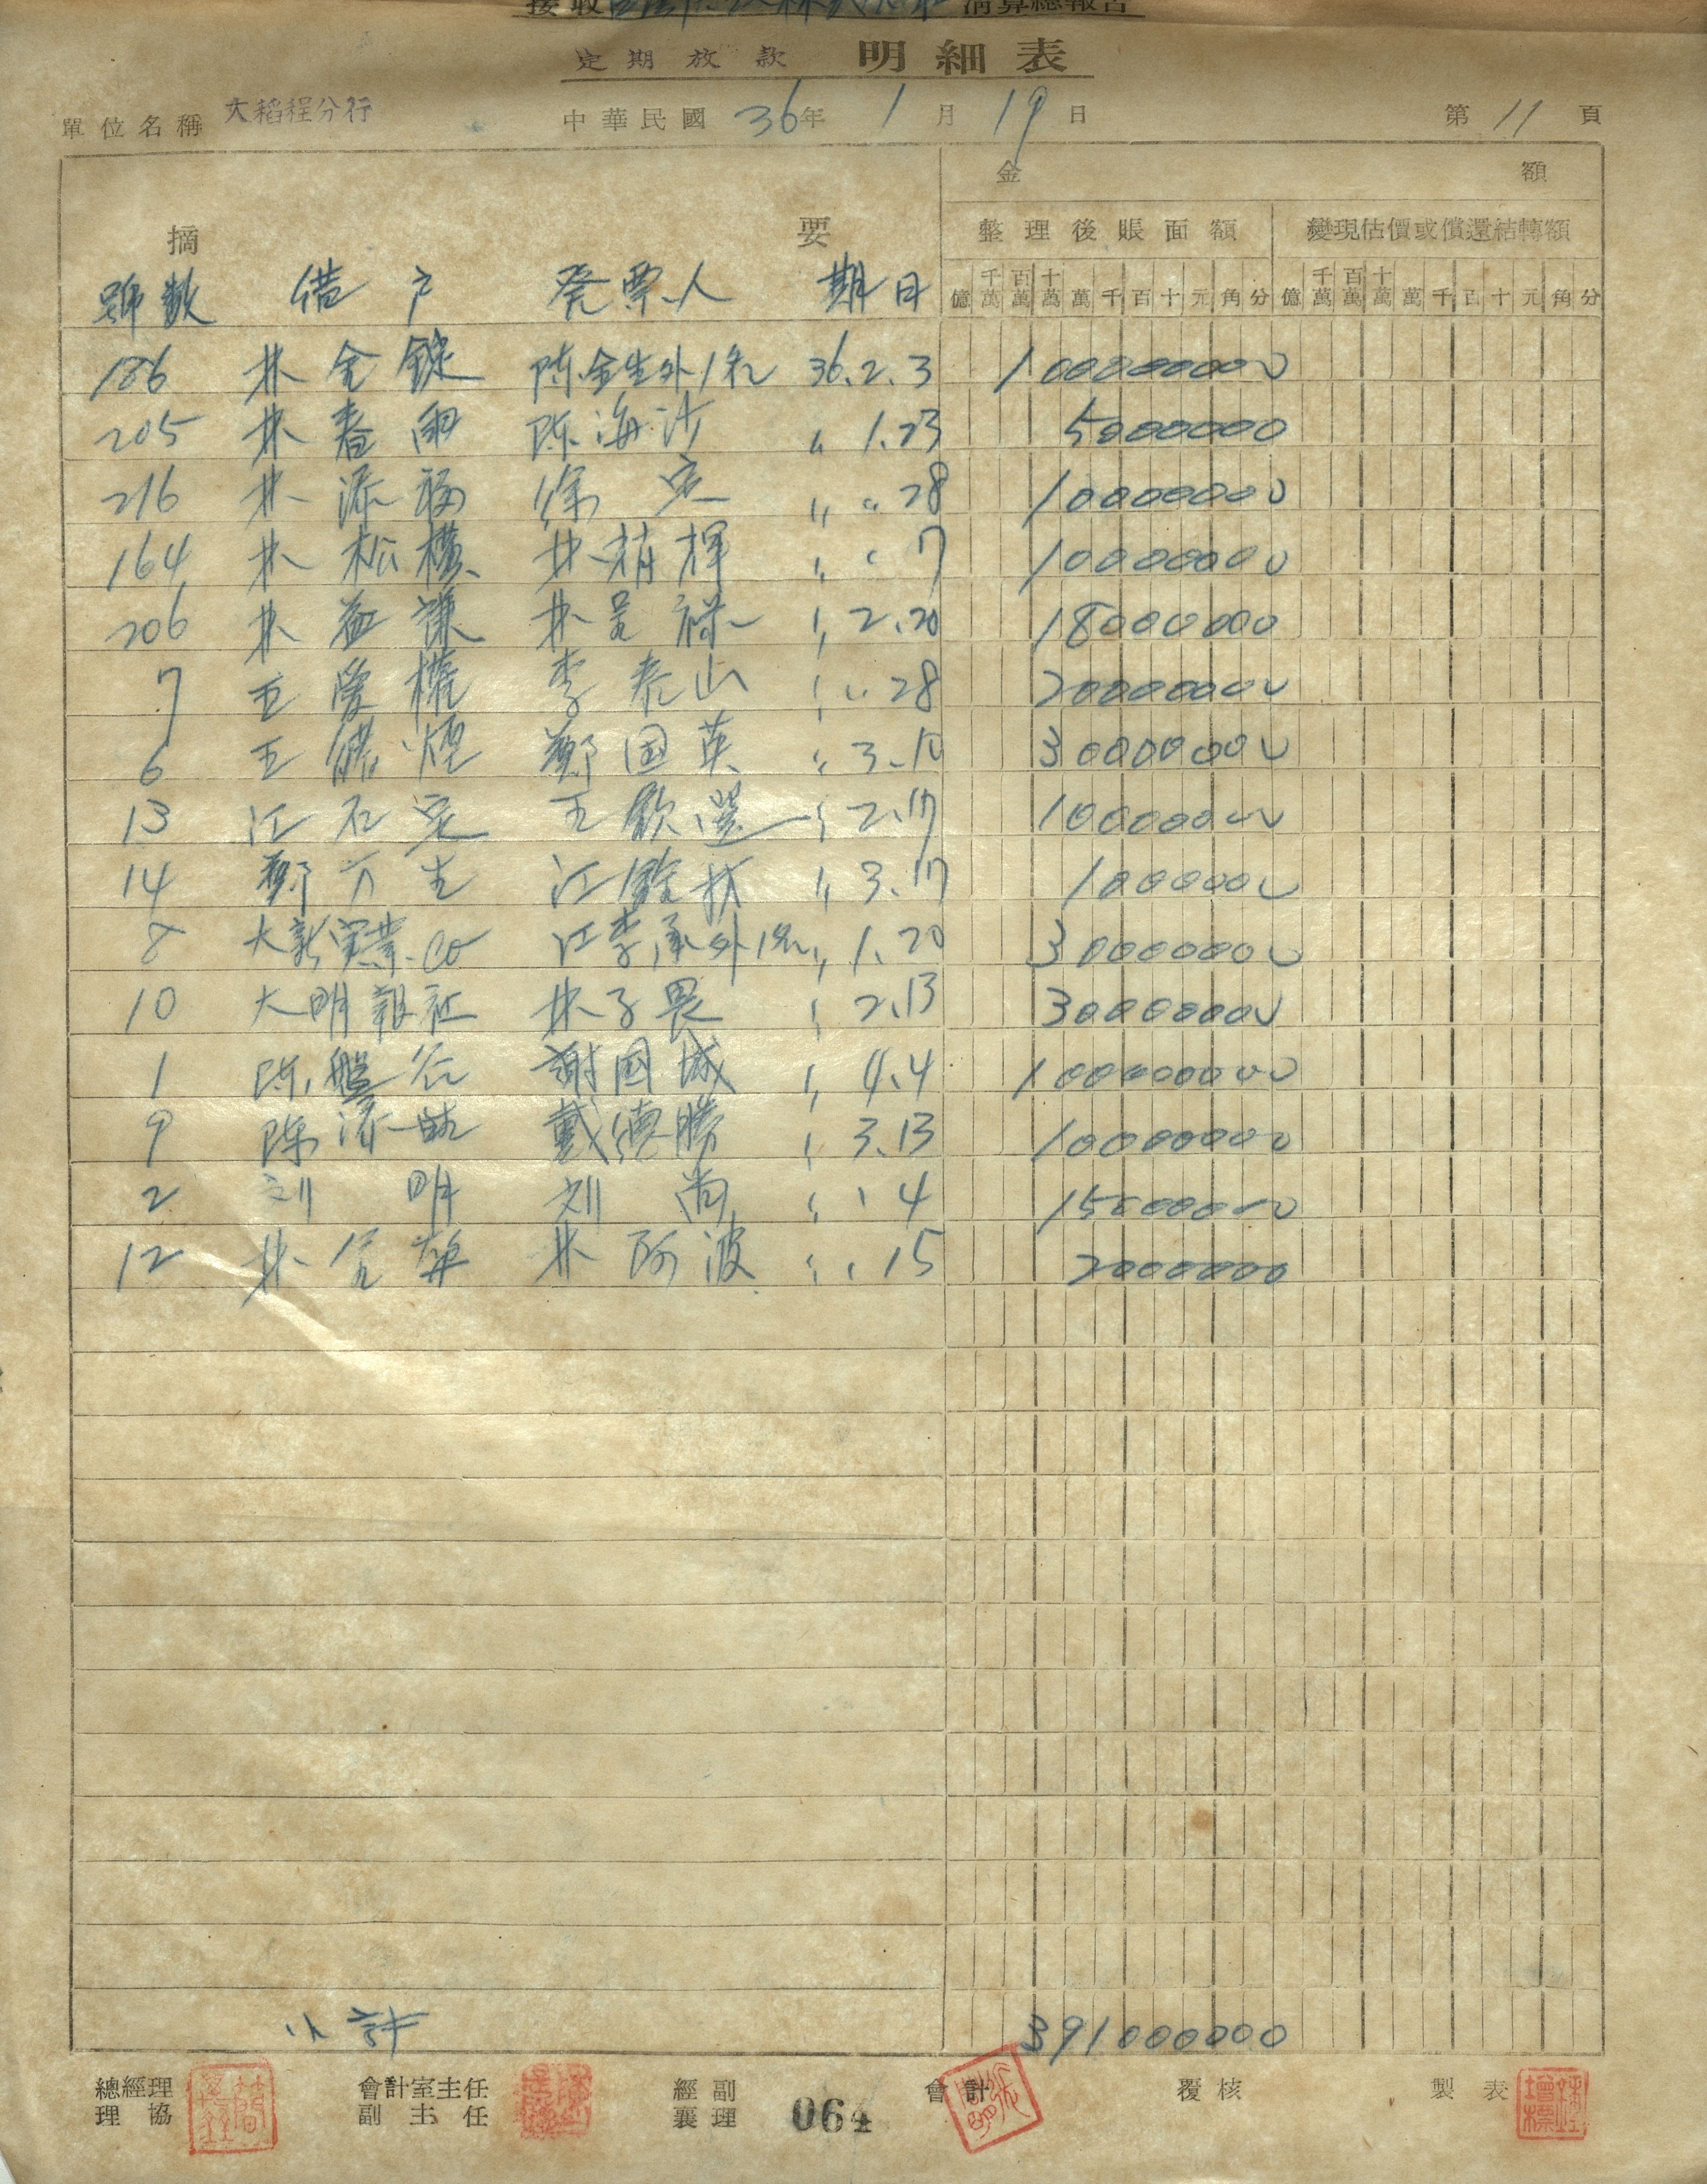 定期放款 明細表
單位名稱 大稻埕分行 中華民國 36年 1月 19日 第 11 頁
金額
摘要 整理後賬面額 變現估價或償還結轉額
號數 借戶 發票人 期日 億 千萬 百萬 十萬 萬 千 百 十 元 角 分 億 千萬 百萬 十萬 萬 千 百 十 元 角 分
186 林金錠 陈金生外1名 36.2.3 100000000
205 林春雨 陈海沙 〃 1.23 5000000
216 林添福 徐定 〃 〃 28 10000000
164 林松 林精輝 〃 〃 7 10000000
206 林益謙 林 祿 〃 2.20 18000000
7 王 權 李泰山 〃 〃 28 20000000
6 王 煙 鄭国英 〃 3.10 30000000
13 江石定 王欽選 〃 2.17 10000000
14 鄭方生 江 〃 3.17 1000000
8 大新實業.Co 江李 外1名 〃 1.20 30000000
10 大明報社 林子畏 〃 2.13 30000000
1 陈盤谷 謝国城 〃 4.4 100000000
9 陈添 戴德勝 〃 3.13 10000000
2 刘明 刘尚 〃 〃 4 15000000
12 林 林阿波 〃 〃 15 2000000
小計 391000000
總經理 會計室主任 經副 會計 覆核 製表
理協 副主任 襄理 064